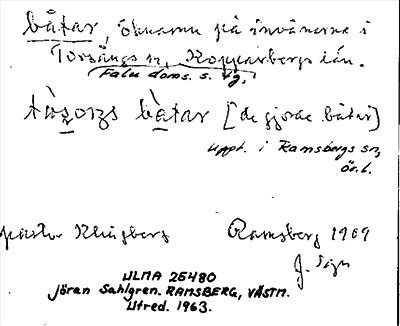 båtar, öknamn på invånarna i
Torsångs sn, Kopparbergs län.
Falu doms. s. vg.
båtar [de gjorde båtar]
uppt. i Ramsbergs sn,
Ör. l.
pastor Klingberg Ramsberg 1909
J. Sgn
ULMA 25480
Jöran Sahlgren. RAMSBERG, VÄSTM.
Utred. 1963.